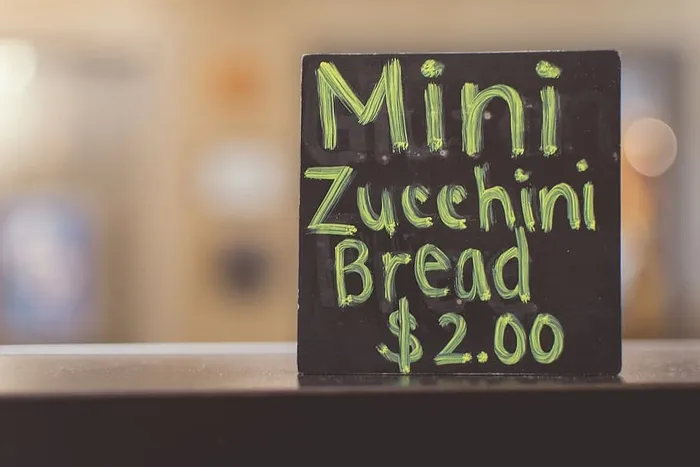 Mini
Zucchini
Bread
$2.00